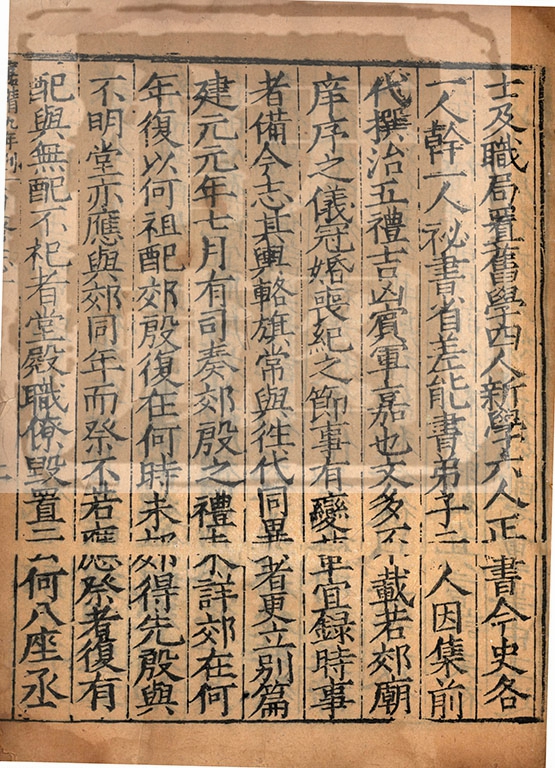 士及職局置舊學四人新學六人正書令史各
一人幹一人祕書省差能書弟子二人因集前
代撰治五禮吉凶賓軍嘉也文多不載若郊廟
庠序之儀冠婚喪紀之節事有變革宜錄時事
者備今志其輿輅旗常與往代同異者更立別篇
建元元年七月有司奏郊殷之禮未詳郊在何
年復以何祖配郊殷復在何時未郊得先殷與
不明堂亦應與郊同年而祭不若應祭者復有
配與無配不祀者堂殿職僚毀置云何八座丞
嘉靖九年刊